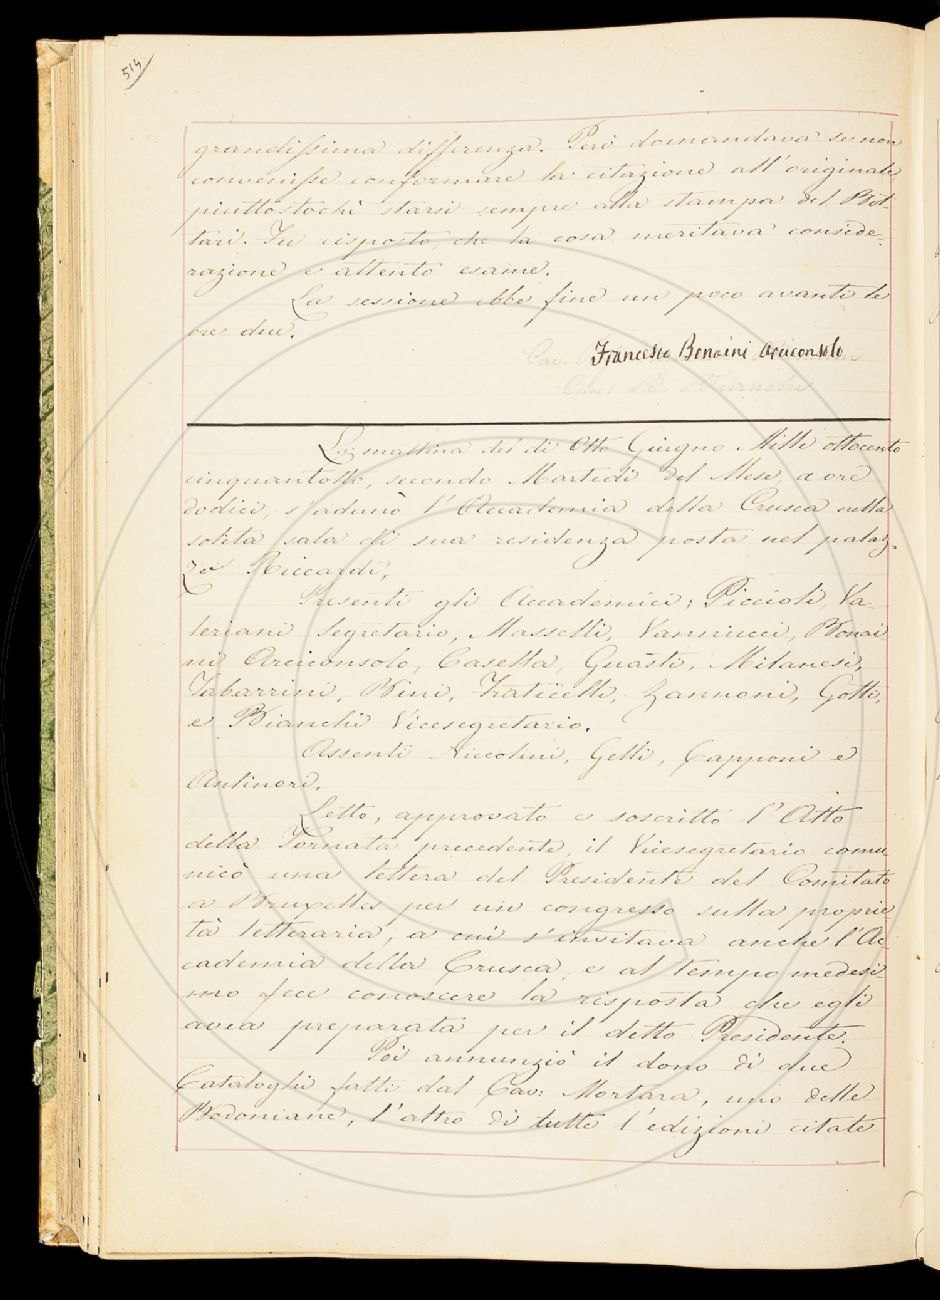 514
grandissima differenza. Però domandava se non
convenisse conformare la citazione all'originale
piuttostochè starsi sempre alla stampa del Bot-
tari. Fu risposto, che la cosa meritava conside-
razione e attento esame.
La sessione ebbe fine un poco avanti le
ore due.
Francesco Bonaini Arciconsolo
La mattina dei dì Otto Giugno Mille ottocento
cinquantotto, secondo Martedì del Mese, a ore
dodici, s'adunò l'Accademia della Crusca nella
solita sala di sua residenza posta nel palaz-
zo Riccardi.
Presenti gli Accademici; Piccioli, Va-
leriani Segretario, Masselli, Vannucci, Bonai
ni Arciconsolo, Casella, Guasti, Milanesi,
Tabarrini, Bini, Fraticelli, Zannoni, Gotti,
e Bianchi Vicesegretario.
Assenti Niccolini, Gelli, Capponi e
Antinori.
Letto, approvato e soscritto l'Atto
della Tornata precedente, il Vicesegretario comu
nicò una lettera del Presidente del Comitato
a Bruxelles per un congresso sulla proprie
tà letteraria, a cui s'invitava anche l'Ac-
cademia della Crusca, e al tempo medesi
mo fece conoscere la risposta che egli
avea preparata per il ditto Presidente.
Poi annunziò il dono di due
Cataloghi fatti dal Cav: Mortara, uno delle
Bodoniane, l'altro di tutte l'edizioni citate